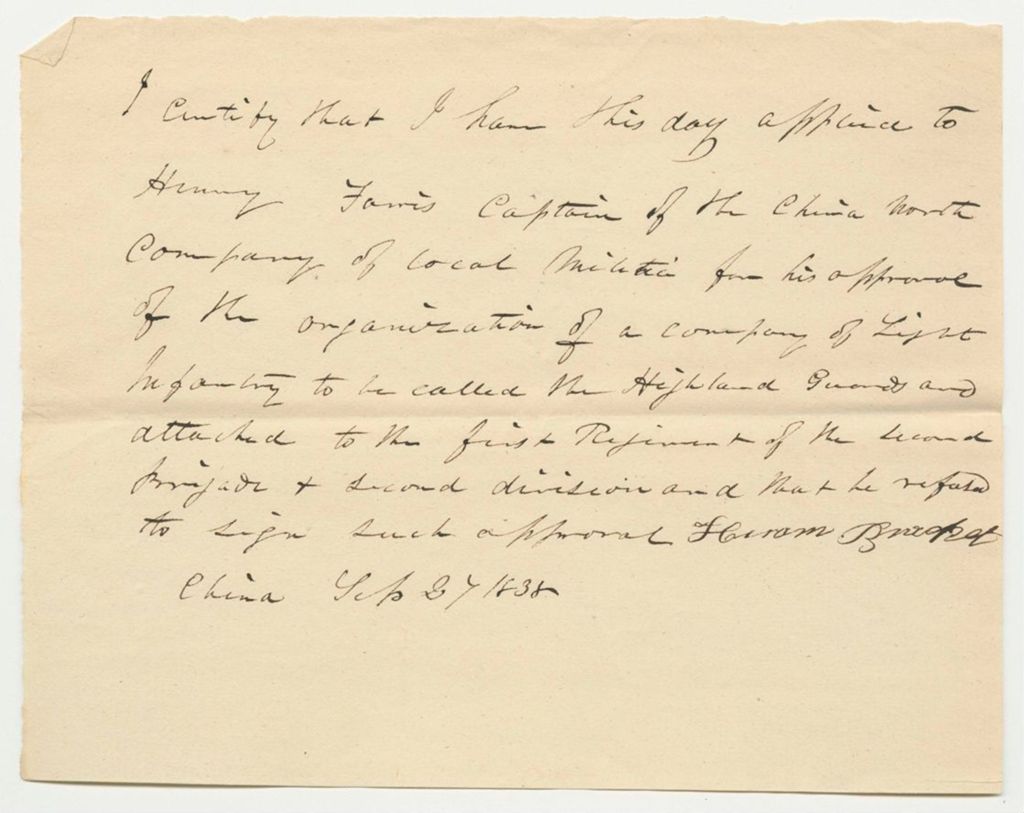 I Certify that I have this day applied to
Henry Farris Captain of the China North
Company of local Militia for his approval
of the organization of a company of Light
Infantry to be called the Highland Guards and
attached to the first Regiment of the second
Brigade & second division and that he refused
to sign such approval Hiram
China Sep 27 1838